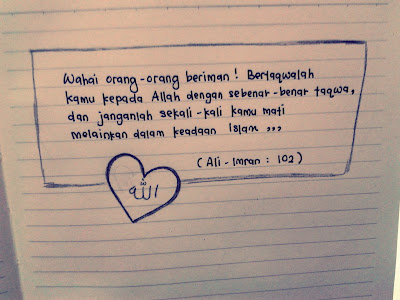 Wahai orang-orang beriman! Bertaqwalah
kamu kepada Allah dengan sebenar-benar taqwa,
dan janganlah sekali-kali kamu mati
melainkan dalam keadaan Islam ,,,
(Ali-Imran : 102)
الله